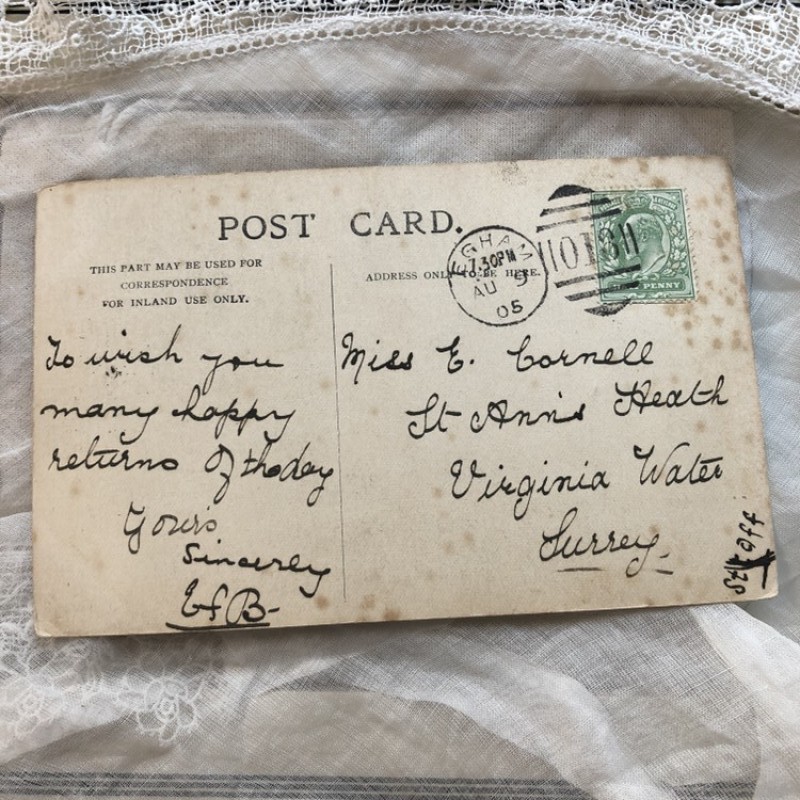 POST CARD.
THIS PART MAY BE USED FOR
CORRESPONDENCE
FOR INLAND USE ONLY.
ADDRESS ONLY TO BE HERE.
EGHAM
7.30PM
AU 9
05
PENNY
To wish you
many happy
returns of the day
Yours
Sincerly
Miss E. Cornell
St Ann's Heath
Virginia Water
Surrey.